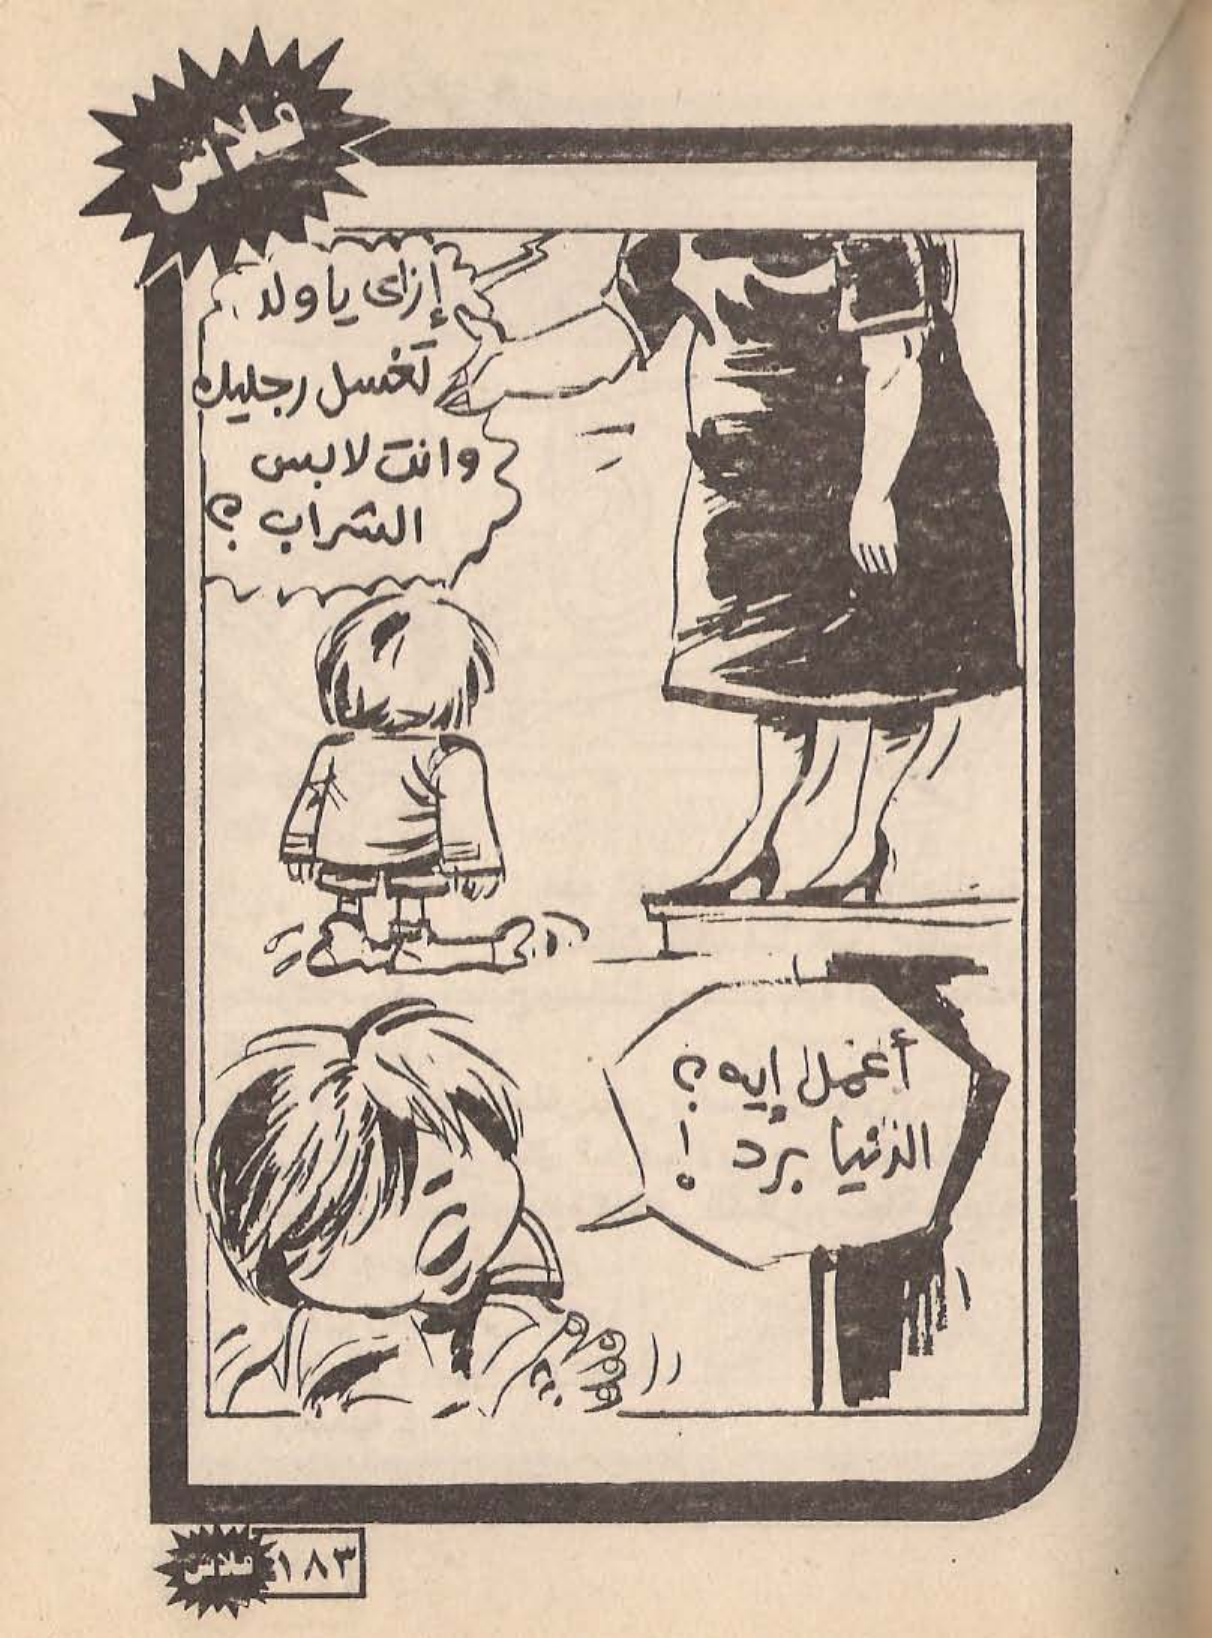 فلاش
إزاى يا ولد
تغسل رجليك
وانت لابس
الشراب ؟
أعمل إيه ؟
الدنيا برد !
فلاش ١٨٣